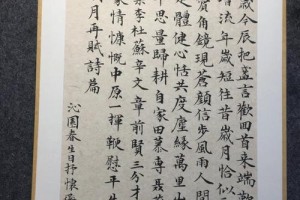 歲今辰把盞言歡回首來端
流年歲短往昔歲月恰似
角鏡現蒼顏信步風雨人間
體健心恬共度塵緣萬里
中思量歸耕自家田慕
李杜蘇辛文章前賢三分才
情慷慨中原一揮鞭慰平生
月再賦詩篇
沁園春生日抒懷